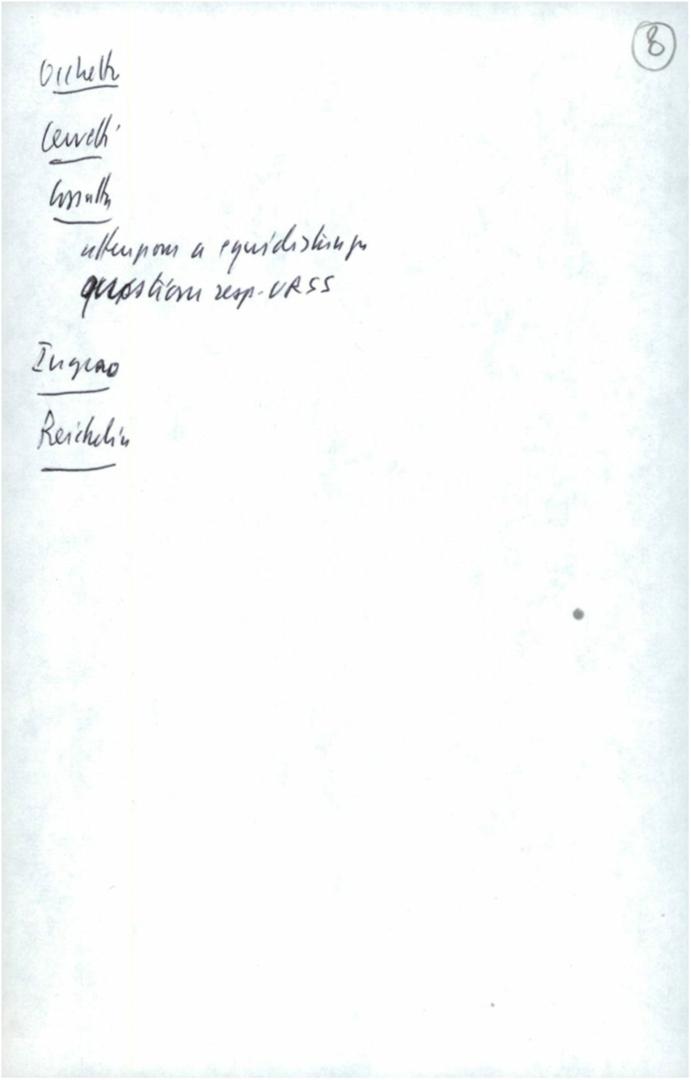 8
Occhetto
Cervetti
Cossutta
attenzione a equidistanza
questione resp. URSS
Ingrao
Reichlin